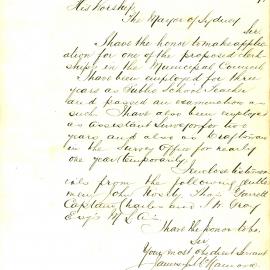 His Worship
The Mayor of Sydney
Sir
I have the honor to make applic
ation for one of the proposed clerk
ships in the Municipal Council
I have been employed for three
years as Public School Teacher
and passed an examination as
such I have also been employed
as assistant Surveyor for two
years and also as Draftsman
in the Survey Office for nearly
one year temporarily
I enclose testimon
ials from the following gentle
men John
Captain Charles and
I have the honor to be
Sir
Your most obedient Servant